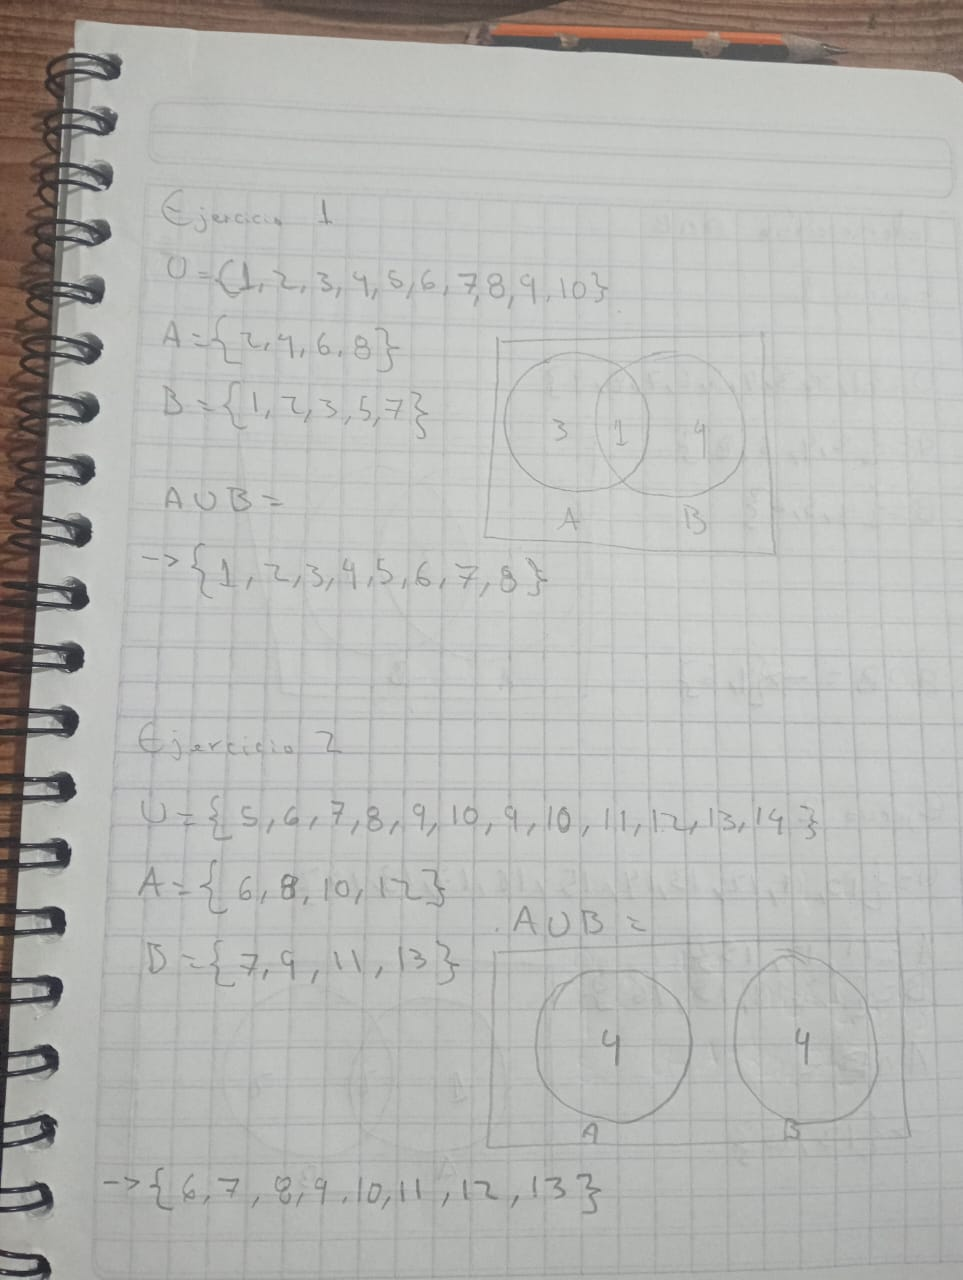 Ejercicio 1
U={1, 2, 3, 4, 5, 6, 7, 8, 9, 10}
A={2, 4, 6, 8}
B={1, 2, 3, 5, 7}
3 1 4
A B
A∪B=
->{1, 2, 3, 4, 5, 6, 7, 8}
Ejercicio 2
U={5, 6, 7, 8, 9, 10, 9, 10, 11, 12, 13, 14}
A={6, 8, 10, 12}
B={7, 9, 11, 13}
A∪B=
4 4
A B
->{6, 7, 8, 9, 10, 11, 12, 13}